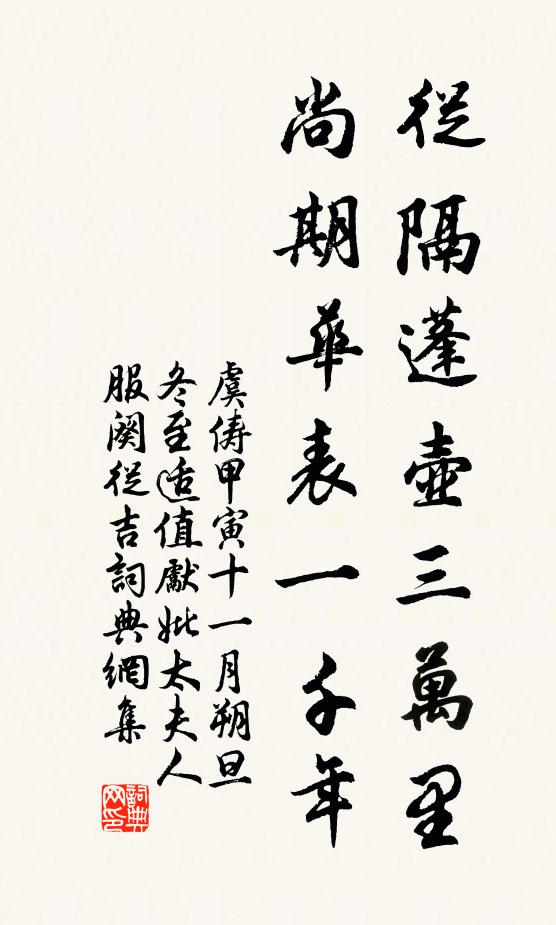 從隔蓬壺三萬里
尚期華表一千年
虞儔甲寅十一月朔旦
冬至适值獻妣太夫人
服闋從吉詞典網集
詞典网印